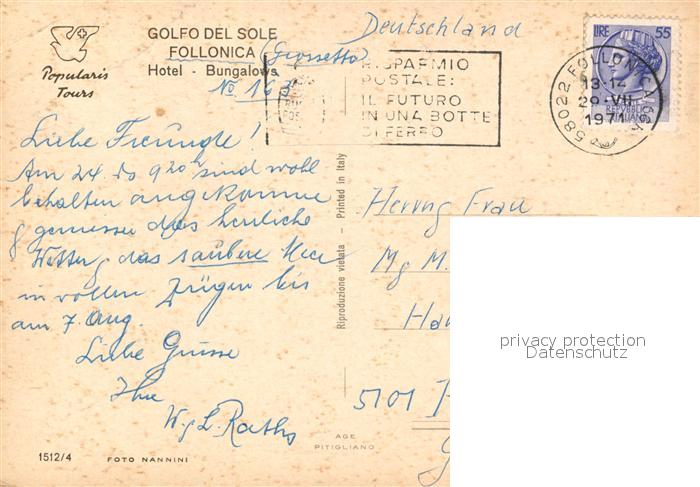 Popularis
Tours
GOLFO DEL SOLE
FOLLONICA (Grosseto)
Hotel - Bungalows
No 163
Deutschland
RISPARMIO
POSTALE:
IL FUTURO
IN UNA BOTTE
DI FERRO
58022 FOLLONICA
13-14
29-VII
1971
LIRE 55
REPUBBLICA
ITALIANA
Liebe Freunde!
Am 24. 9 20 sind wohl
behalten angekomme
genießen das herrliche
Wetter, das saubere Meer
in vollen Zügen bis
am 7. Aug.
Liebe Grüsse
Ihre
W. & L. Raths
Herrn & Frau
Mg M.
Ha
5101
Riproduzione vietata - Printed in Italy
AGE
PITIGLIANO
1512/4
FOTO NANNINI
privacy protection
Datenschutz